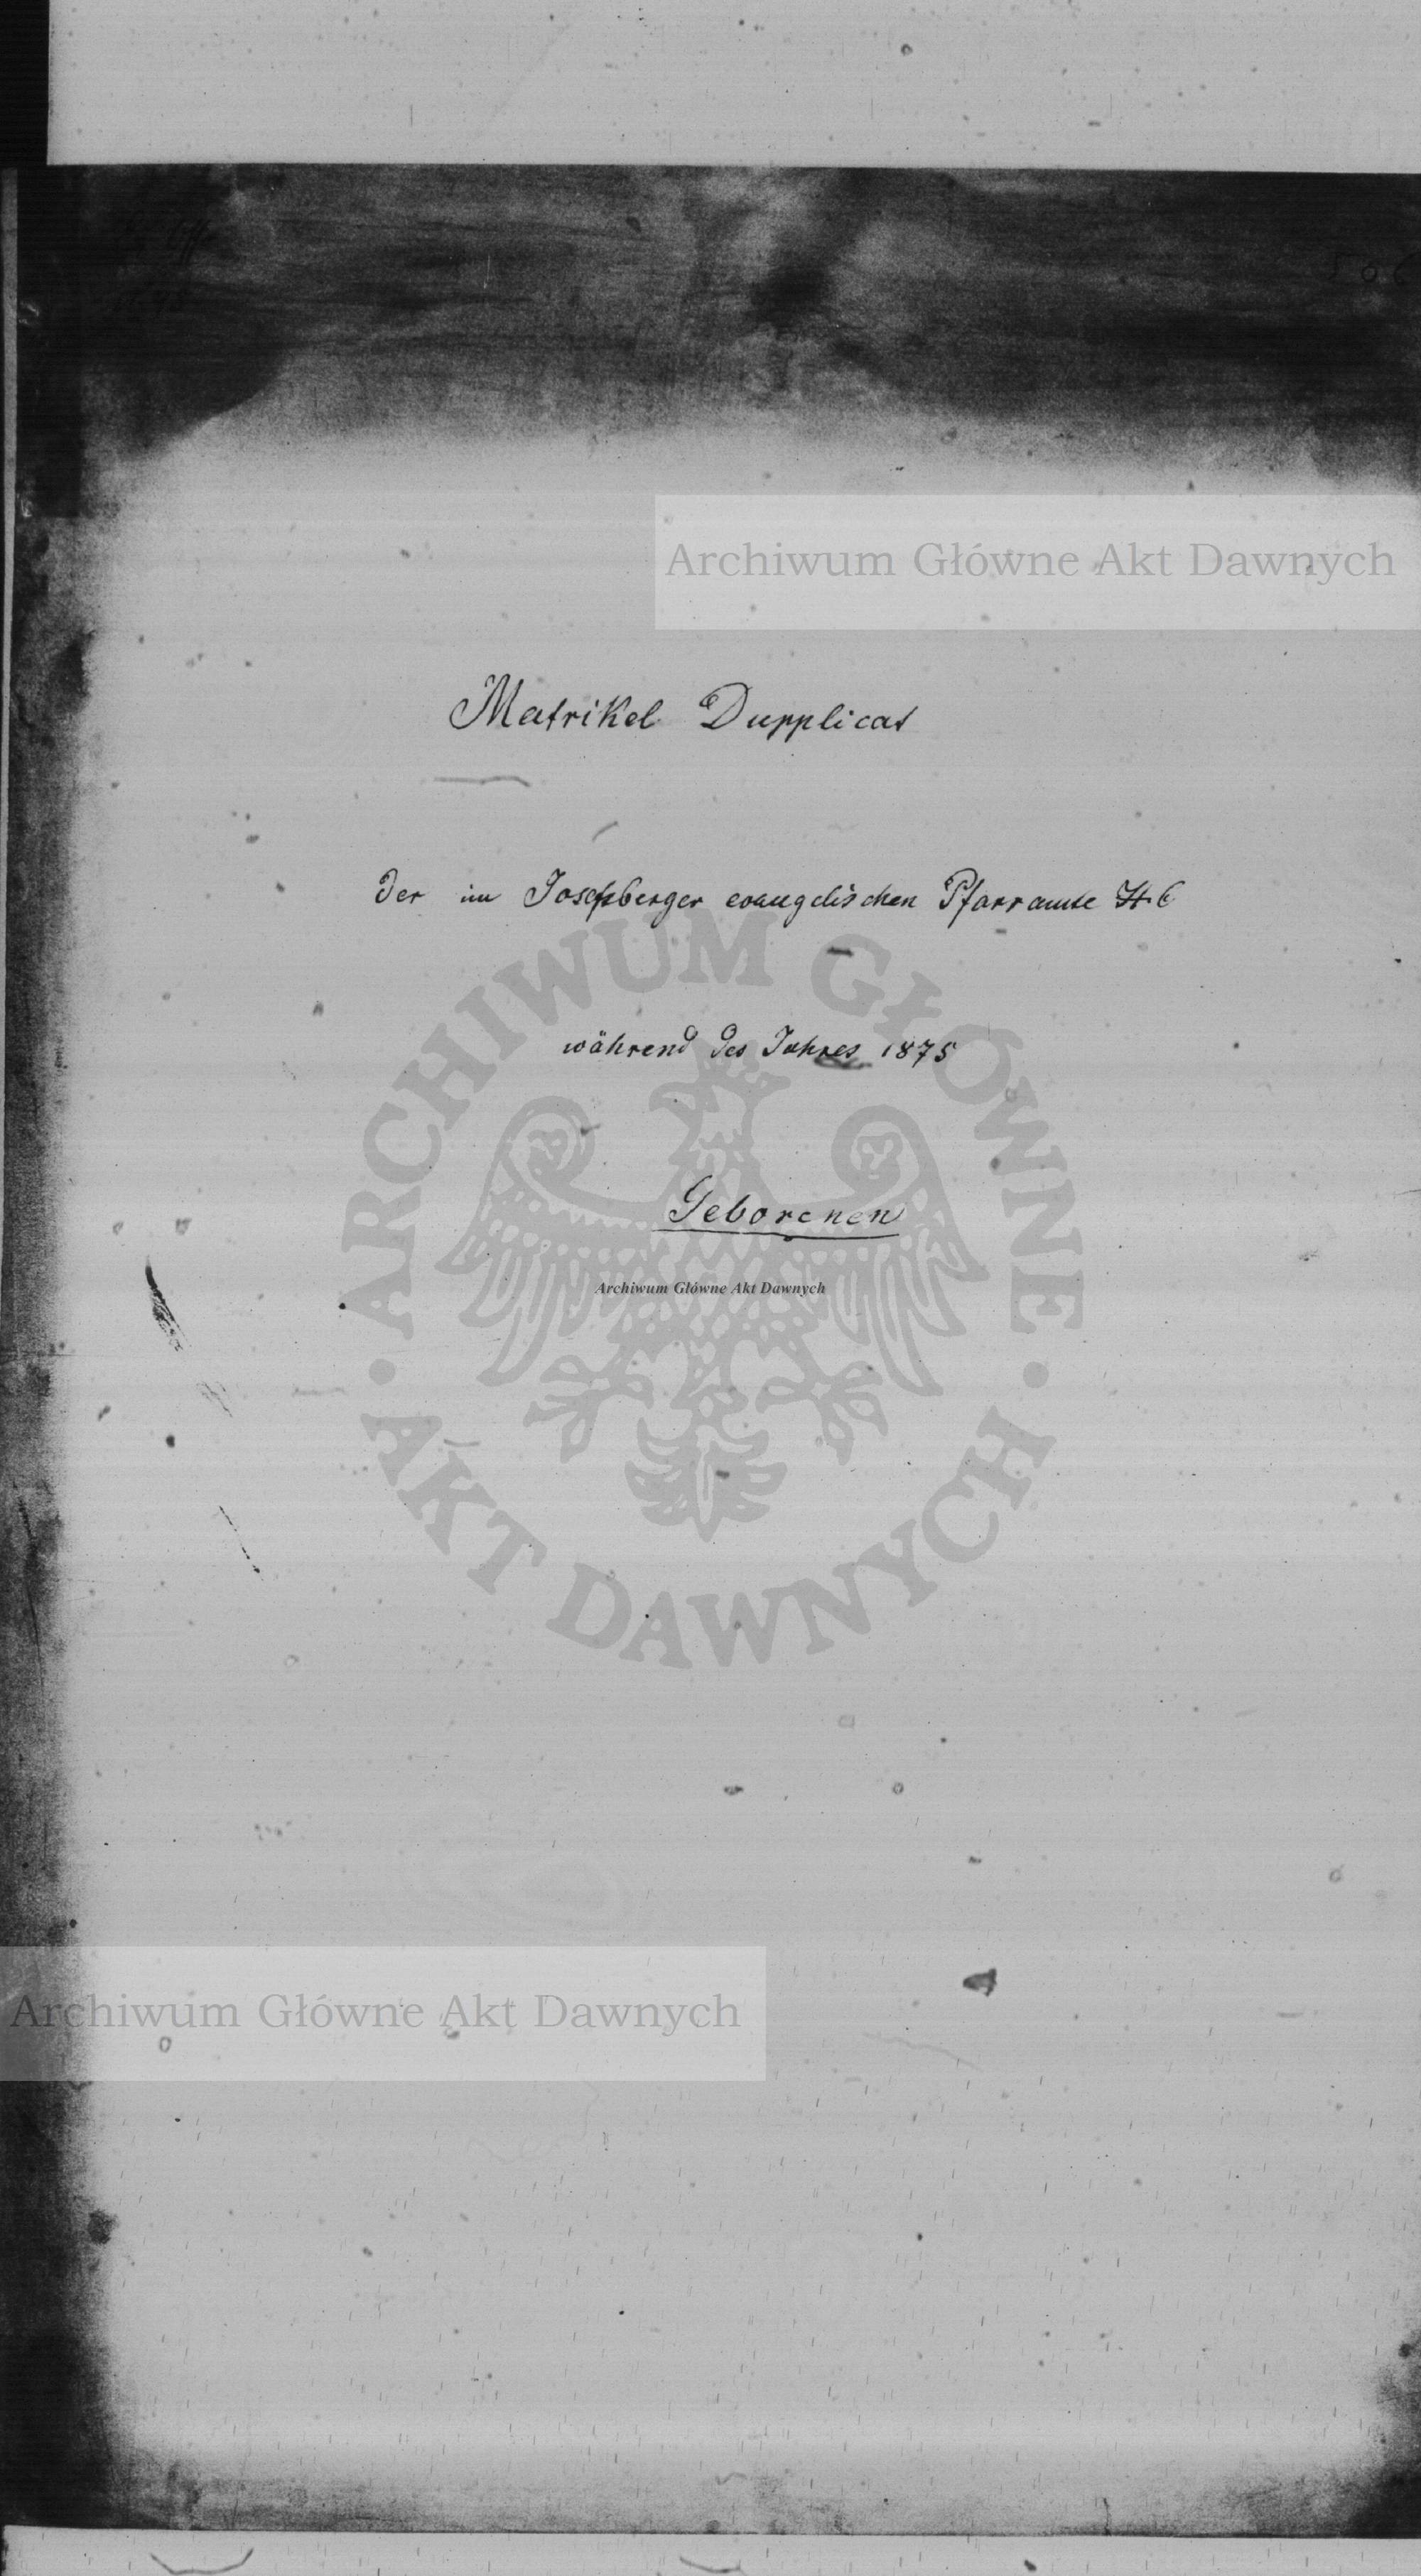 Archiwum Główne Akt Dawnych
Matrikel Dupplicat
der im Josefsberger evangelischen Pfarramte H C
während des Jahres 1875
Geborenen
Archiwum Główne Akt Dawnych
ARCHIWUM GŁÓWNE AKT DAWNYCH
Archiwum Główne Akt Dawnych